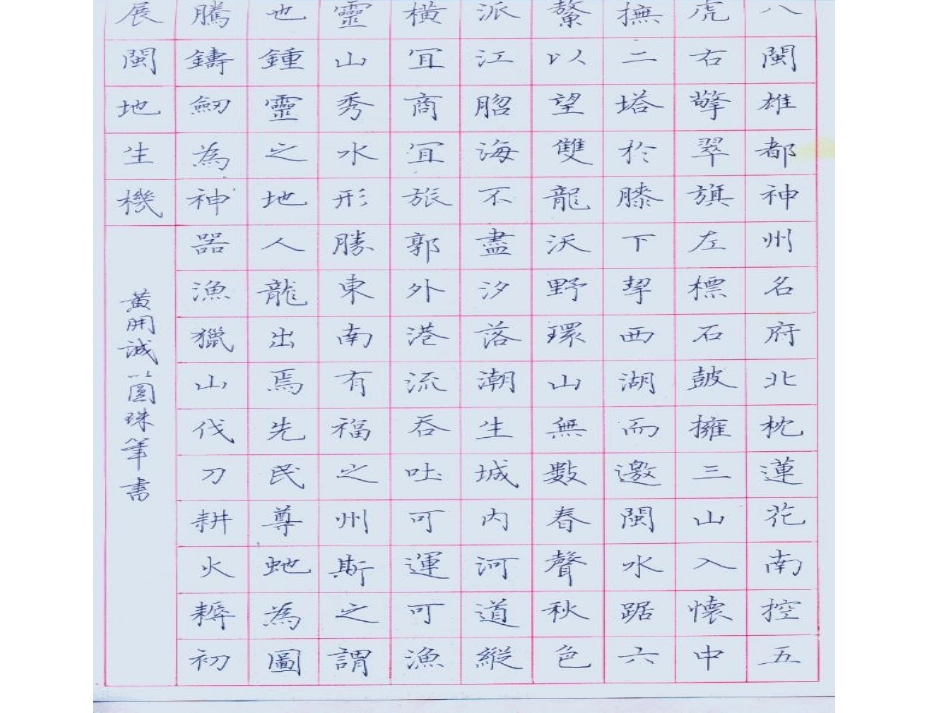 八閩雄都神州名府北枕蓮花南控五
虎右擎翠旗左標石鼓擁三山入懷中
撫二塔於膝下挈西湖而邀閩水踞六
鰲以望雙龍沃野環山無數春聲秋色
派江海不盡汐落潮生城内河道縱
橫宜商宜旅郭外港流吞吐可運可漁
靈山秀水形勝東南有福之州斯之謂
也鍾靈之地人龍出焉先民尊虵為圖
騰鑄劒為神器漁獵山伐刀耕火耨初
展閩地生機
黄開誠以圓珠筆書